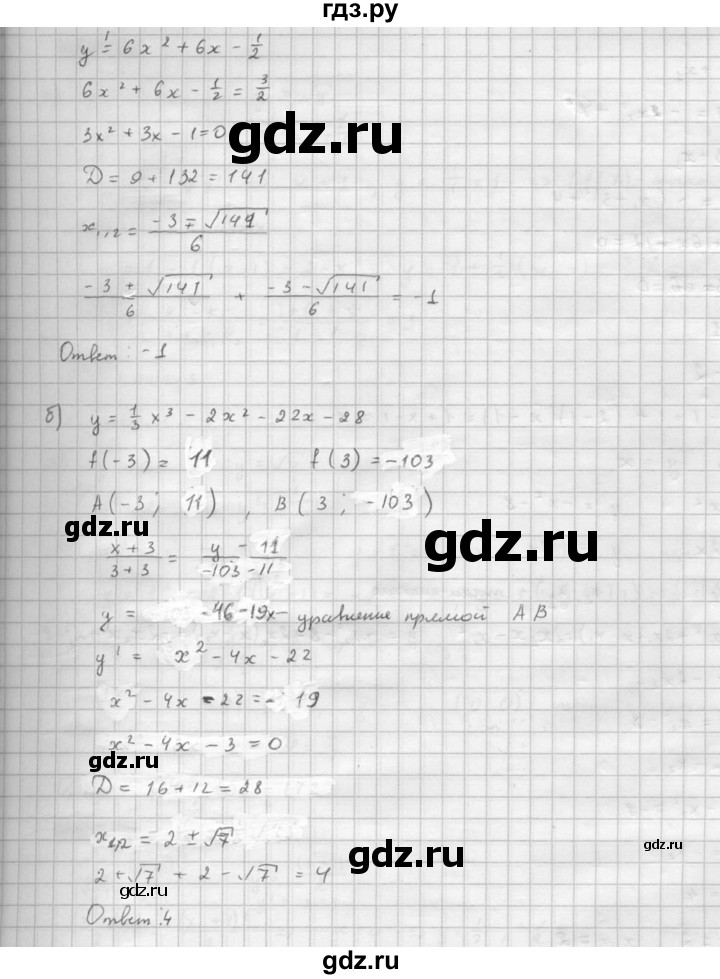 гдз.ру
y' = 6x² + 6x - 1/2
6x² + 6x - 1/2 = 3/2
3x² + 3x - 1 = 0
gdz.ru
D = 9 + 132 = 141
x₁,₂ = (-3 ∓ √141)/6
(-3 + √141)/6 + (-3 - √141)/6 = -1
Ответ: -1
б) y = 1/3 x³ - 2x² - 22x - 28
f(-3) = 11 f(3) = -103
A(-3; 11), B(3; -103)
gdz.ru
gdz.ru
(x + 3)/(3 + 3) = (y - 11)/(-103 - 11)
y = -46-19x - уравнение прямой AB
y' = x² - 4x - 22
x² - 4x - 22 = - 19
x² - 4x - 3 = 0
gdz.ru
D = 16 + 12 = 28
x₁,₂ = 2 ± √7
gdz.ru
gdz.ru
2 + √7 + 2 - √7 = 4
Ответ: 4
gdz.ru
gdz.ru